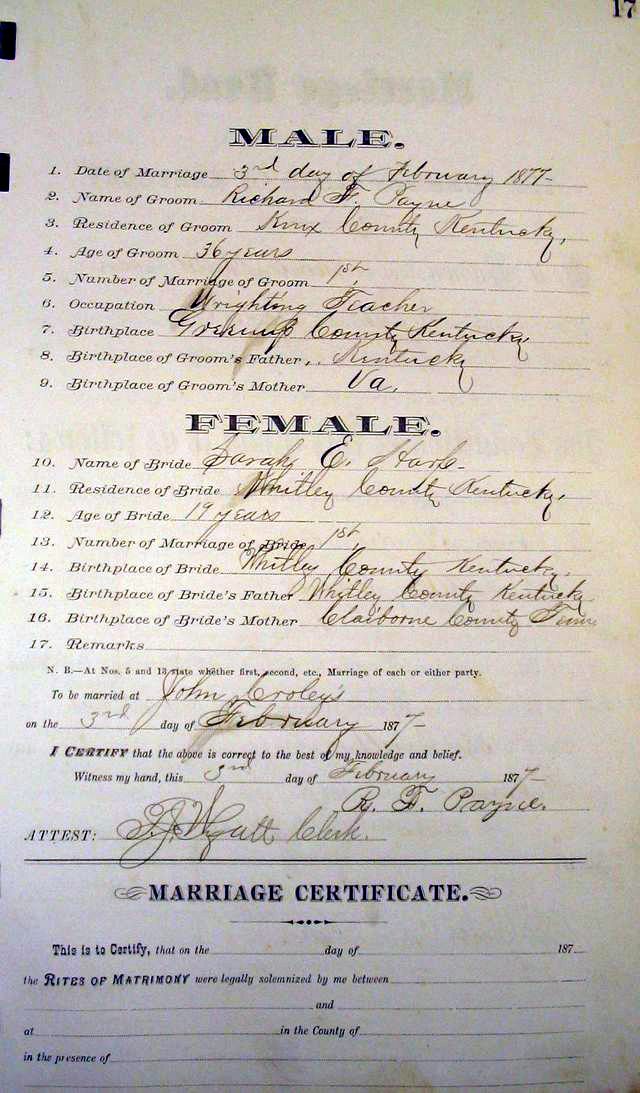 17
MALE.
1. Date of Marriage 3rd day of February 1877-
2. Name of Groom Richard F. Payne
3. Residence of Groom Knx County Kentucky,
4. Age of Groom 36 years
5. Number of Marriage of Groom 1st,
6. Occupation Wrighting Teacher
7. Birthplace Greenup County Kentucky
8. Birthplace of Groom's Father, Kentucky
9. Birthplace of Groom's Mother Va,
FEMALE.
10. Name of Bride Sarah E.
11. Residence of Bride Whitley County Kentucky,
12. Age of Bride 19 years
13. Number of Marriage of Bride 1st,
14. Birthplace of Bride Whitley County Kentucky,
15. Birthplace of Bride's Father Whitley County Kentucky
16. Birthplace of Bride's Mother Claiborne County Tenn
17. Remarks
N. B.—At Nos. 5 and 13 state whether first, second, etc., Marriage of each or either party.
To be married at John Croley's
on the 3rd day of February 1877-
I CERTIFY that the above is correct to the best of my knowledge and belief.
Witness my hand, this 3rd day of February 1877-
R. F. Payne.
ATTEST: Wyatt Clerk.
MARRIAGE CERTIFICATE.
This is to Certify, that on the day of 187
the RITES OF MATRIMONY were legally solemnized by me between
and
at in the County of
in the presence of